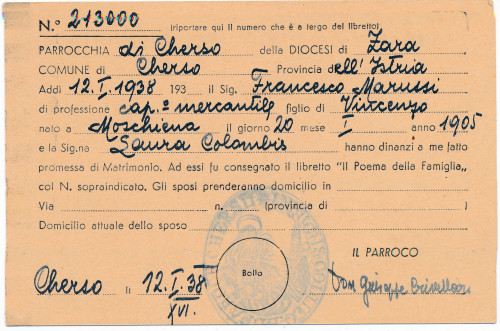 N.º 213000 (riportare qui il numero che è a tergo del libretto)
PARROCCHIA di Cherso della DIOCESI di Zara
COMUNE di Cherso Provincia dell'Istria
Addi 12. I. 1938 193 il Sig. Francesco Marussi
di professione cap.º mercantile figlio di Vincenzo
nato a Moschiena il giorno 20 mese I anno 1905
e la Sig.na Laura Colombis hanno dinanzi a me fatto
promessa di Matrimonio. Ad essi fu consegnato il libretto "Il Poema della Famiglia"
col N. sopraindicato. Gli sposi prenderanno domicilio in
Via n. (provincia di )
Domicilio attuale dello sposo
IL PARROCO
Bollo
Cherso li 12. I. 38
XVI.
Don Giuseppe